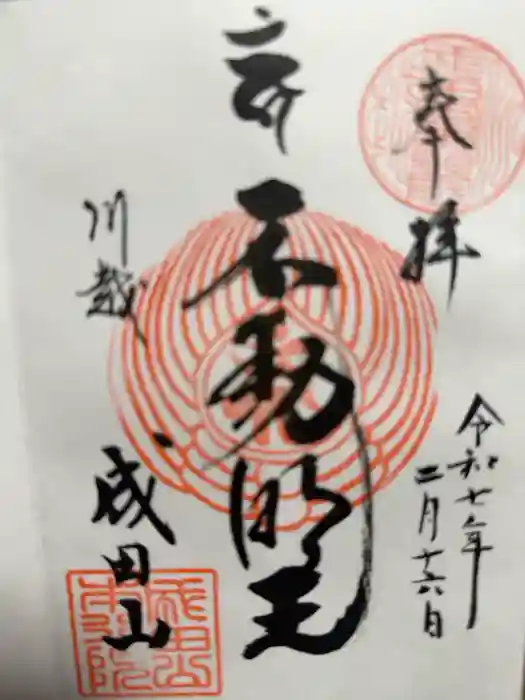 奉拝
令和七年
二月十六日
不動明王
川越
成田山